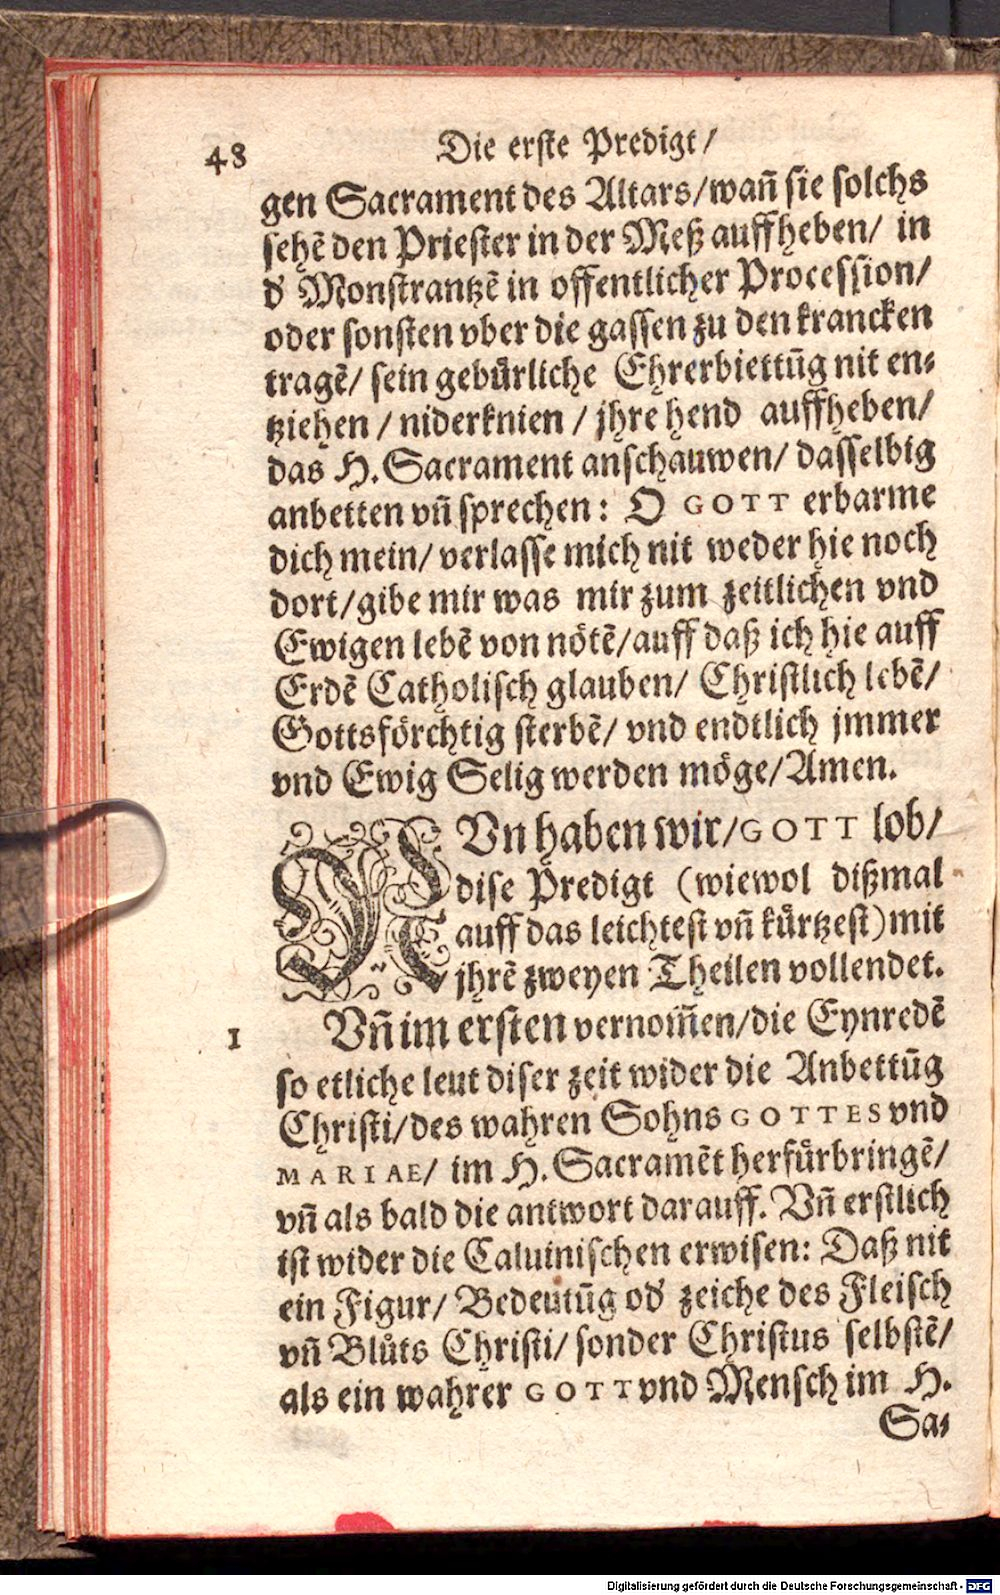 48 Die erste Predigt/
gen Sacrament des Altars/wañ sie solchs
sehẽ den Priester in der Meß auffheben/ in
d' Monstrantzẽ in offentlicher Procession/
oder sonsten vber die gassen zu den krancken
tragẽ/ sein gebürliche Ehrerbiettũg nit en⸗
tziehen / niderknien / jhre hend auffheben/
das H. Sacrament anschauwen/ dasselbig
anbetten vñ sprechen: O GOTT erbarme
dich mein/ verlasse mich nit weder hie noch
dort/gibe mir was mir zum zeitlichen vnd
Ewigen lebẽ von nötẽ/auff daß ich hie auff
Erdẽ Catholisch glauben/ Christlich lebẽ/
Gottsförchtig sterbẽ/ vnd endtlich jmmer
vnd Ewig Selig werden möge/Amen.
NVn haben wir/GOTT lob/
dise Predigt (wiewol dißmal
auff das leichtest vñ kürtzest)mit
jhrẽ zweyen Theilen vollendet.
1 Vñ im ersten vernom̃en/die Eynredẽ
so etliche leut diser zeit wider die Anbettũg
Christi/des wahren Sohns GOTTES vnd
MARIAE/ im H. Sacramẽt herfürbringẽ/
vñ als bald die antwort darauff. Vñ erstlich
ist wider die Caluinischen erwisen: Daß nit
ein Figur/ Bedeutũg od' zeiche des Fleisch
vñ Blůts Christi/ sonder Christus selbstẽ/
als ein wahrer GOTT vnd Mensch im H.
Sa⸗
Digitalisierung gefördert durch die Deutsche Forschungsgemeinschaft - DFG